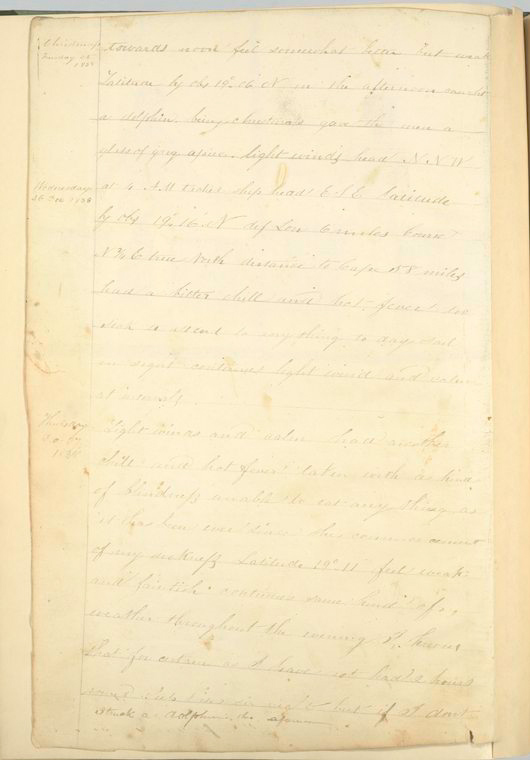 Christmas
Tuesday 25
1838
towards noon feel somewhat better but weak
Latitude by obs 19°.06 N in the afternoon caught
a dolphin. being christmas gave the men a
glass of grog apiece. light winds head N.N.W
Wednesday
26 Dec 1838
at 4 AM tacked ship head E S E Latitude
by obs 19°.16 N dif Lon 6 miles Course
N ¾ E true North distance to Cape 158 miles
had a bitter chill and hot fever too
sick to attend to any thing to day sail
in sight continues light wind and calm
at intervals
Thursday
Dec 27
1838
Light winds and calm had another
chill and hot fever taken with a kind
of blindness unable to eat any thing as
it has been ever since the commencement
of my sickness Latitude 19°.11 feel weak
and faintish continues same kind of
weather throughout the evening I know
that for certain as I have not had 2 hours
sound sleep but if I dont
Struck a dolphin the